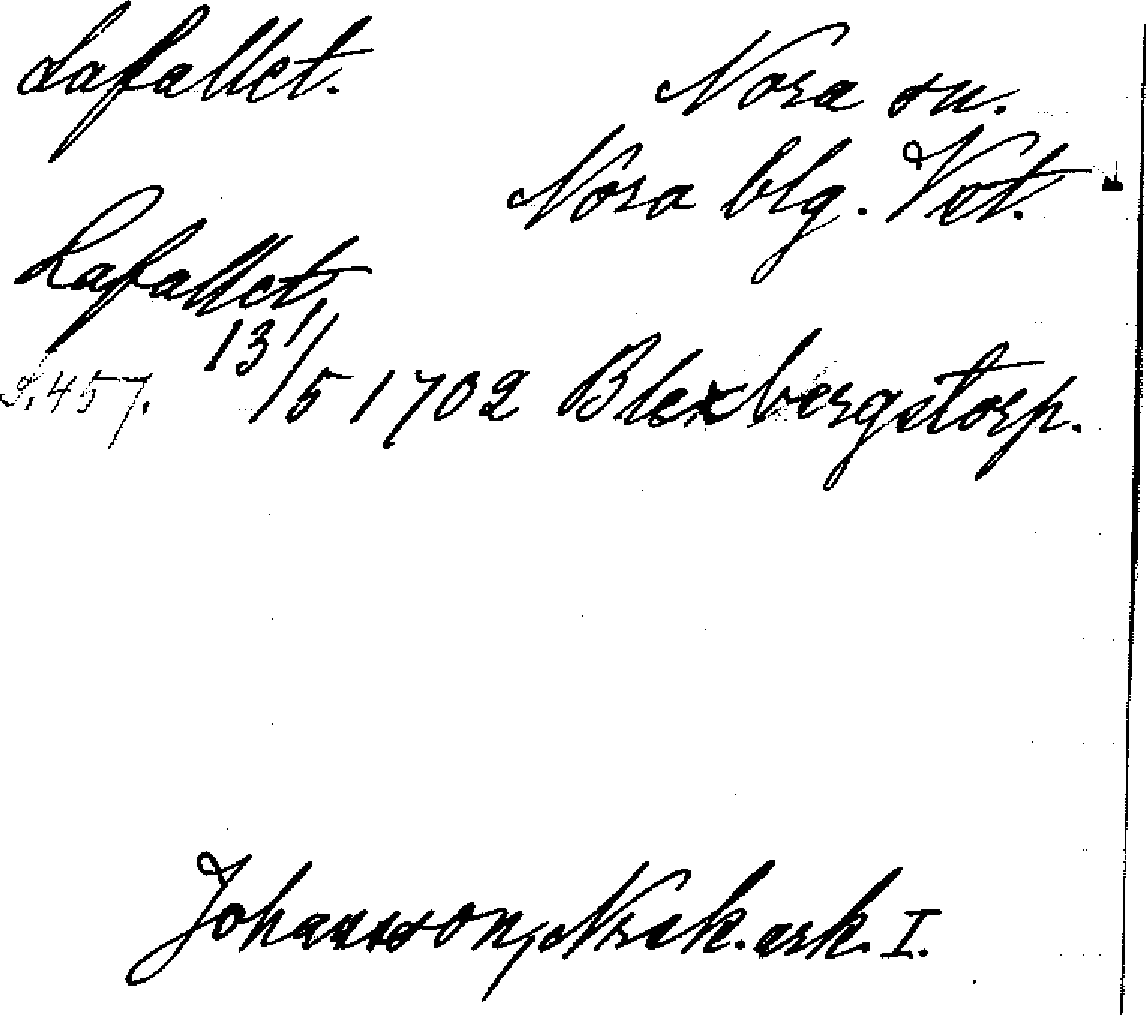 Lafallet.
Nora sn.
Nora blg. Vst.
Lafallet,
S. 457. 13/5 1702 Blexbergstorp.
Johansson, Nrak. ark. I.